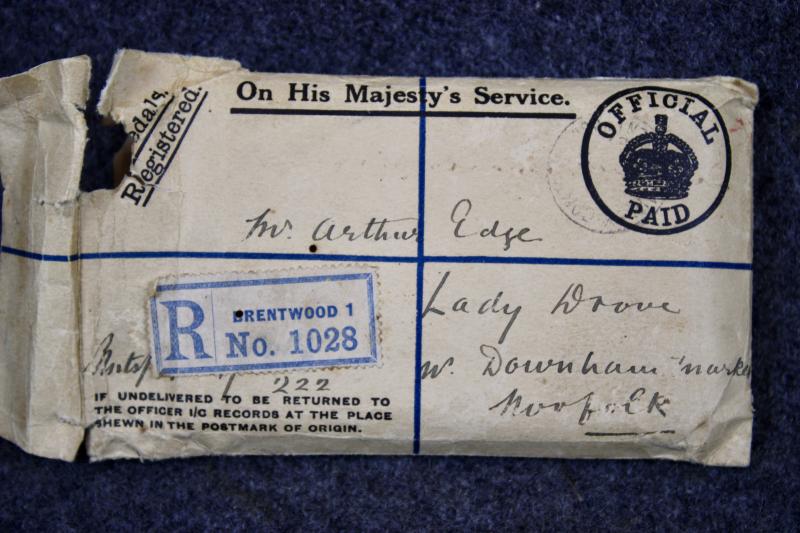 On His Majesty's Service.
edals.
Registered.
OFFICIAL
PAID
Mr. Arthur Edge
Lady Drove
Nr. Downham Mark
Norfolk
R
BRENTWOOD 1
No. 1028
222
IF UNDELIVERED TO BE RETURNED TO
THE OFFICER I/C RECORDS AT THE PLACE
SHEWN IN THE POSTMARK OF ORIGIN.